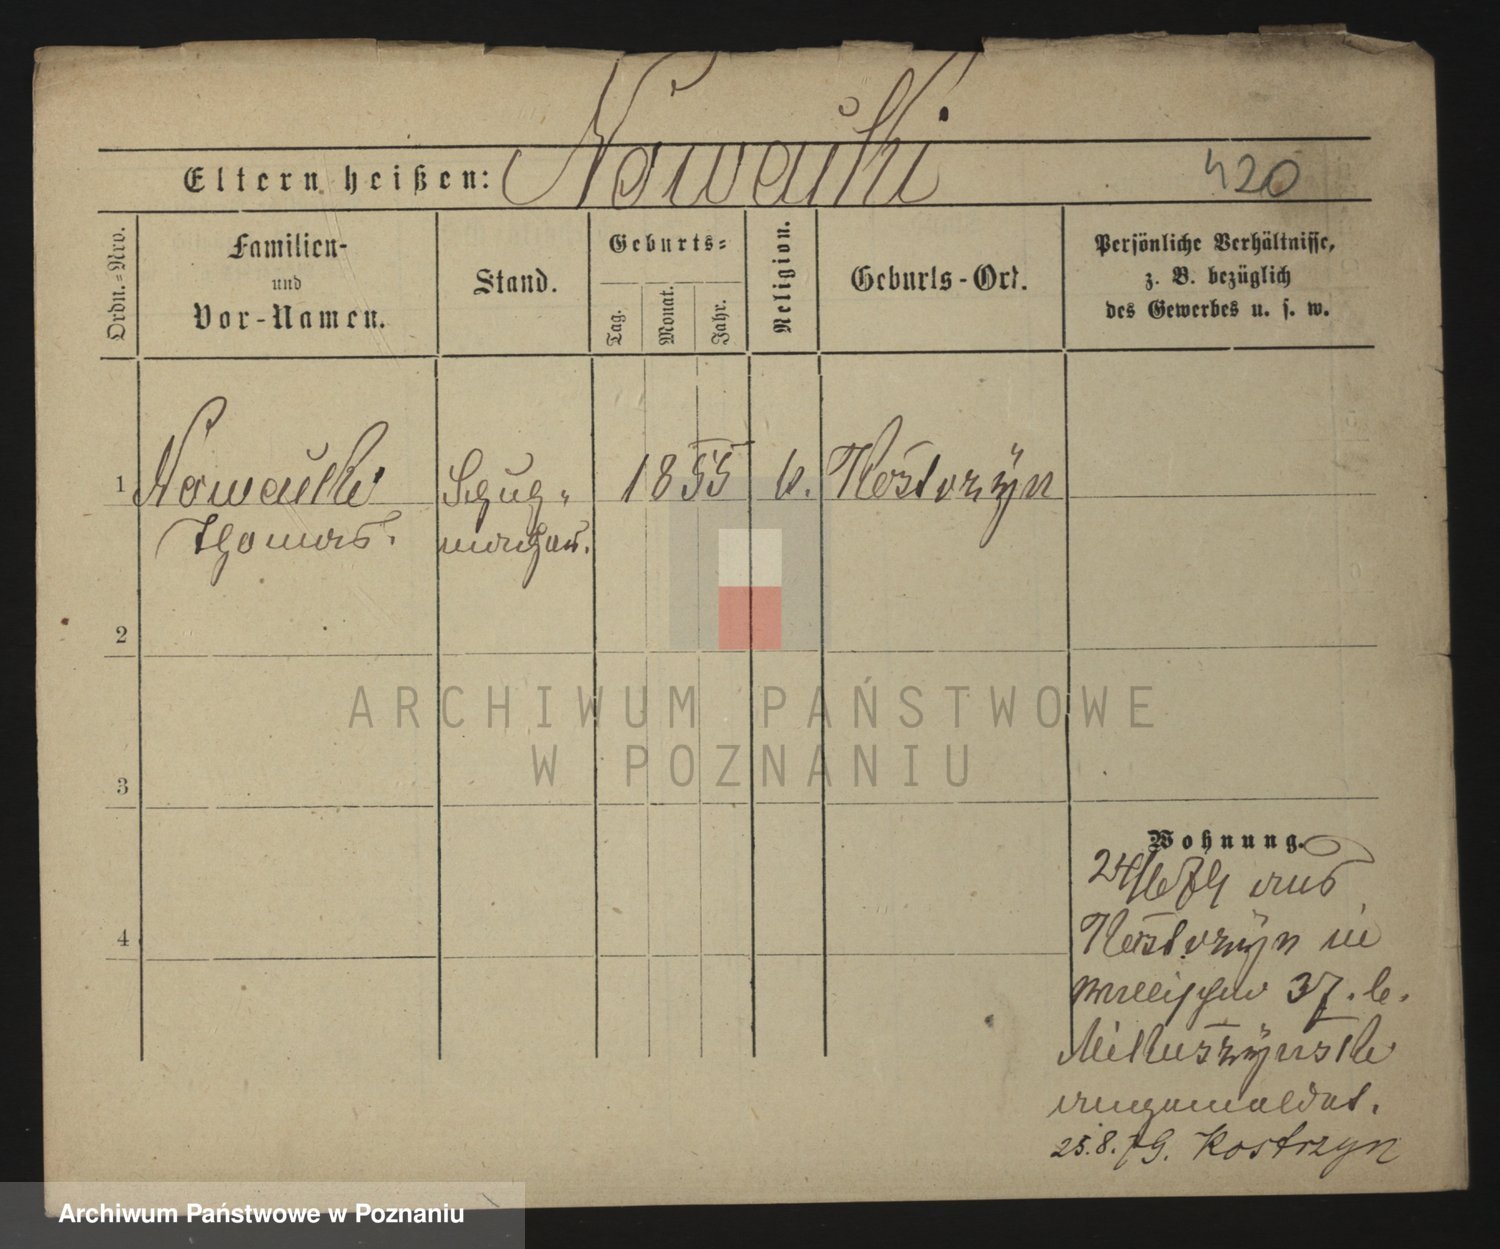 Nowacki
Eltern heißen:
420
Ordn.=Nro.
Familien-
und
Vor-Namen.
Stand.
Geburts=
Tag.
Monat.
Jahr.
Religion.
Geburts-Ort.
Persönliche Verhältnisse,
z. B. bezüglich
des Gewerbes u. s. w.
1
Nowacki
Thomas.
Schuh-
macher.
1855
k.
Kostrzyn
2
3
4
Wohnung.
24/6 79 aus
Kostrzyn in
Wallischei 37. b.
angemeldet.
25.8.79. Kostrzyn
ARCHIWUM PAŃSTWOWE
W POZNANIU
Archiwum Państwowe w Poznaniu